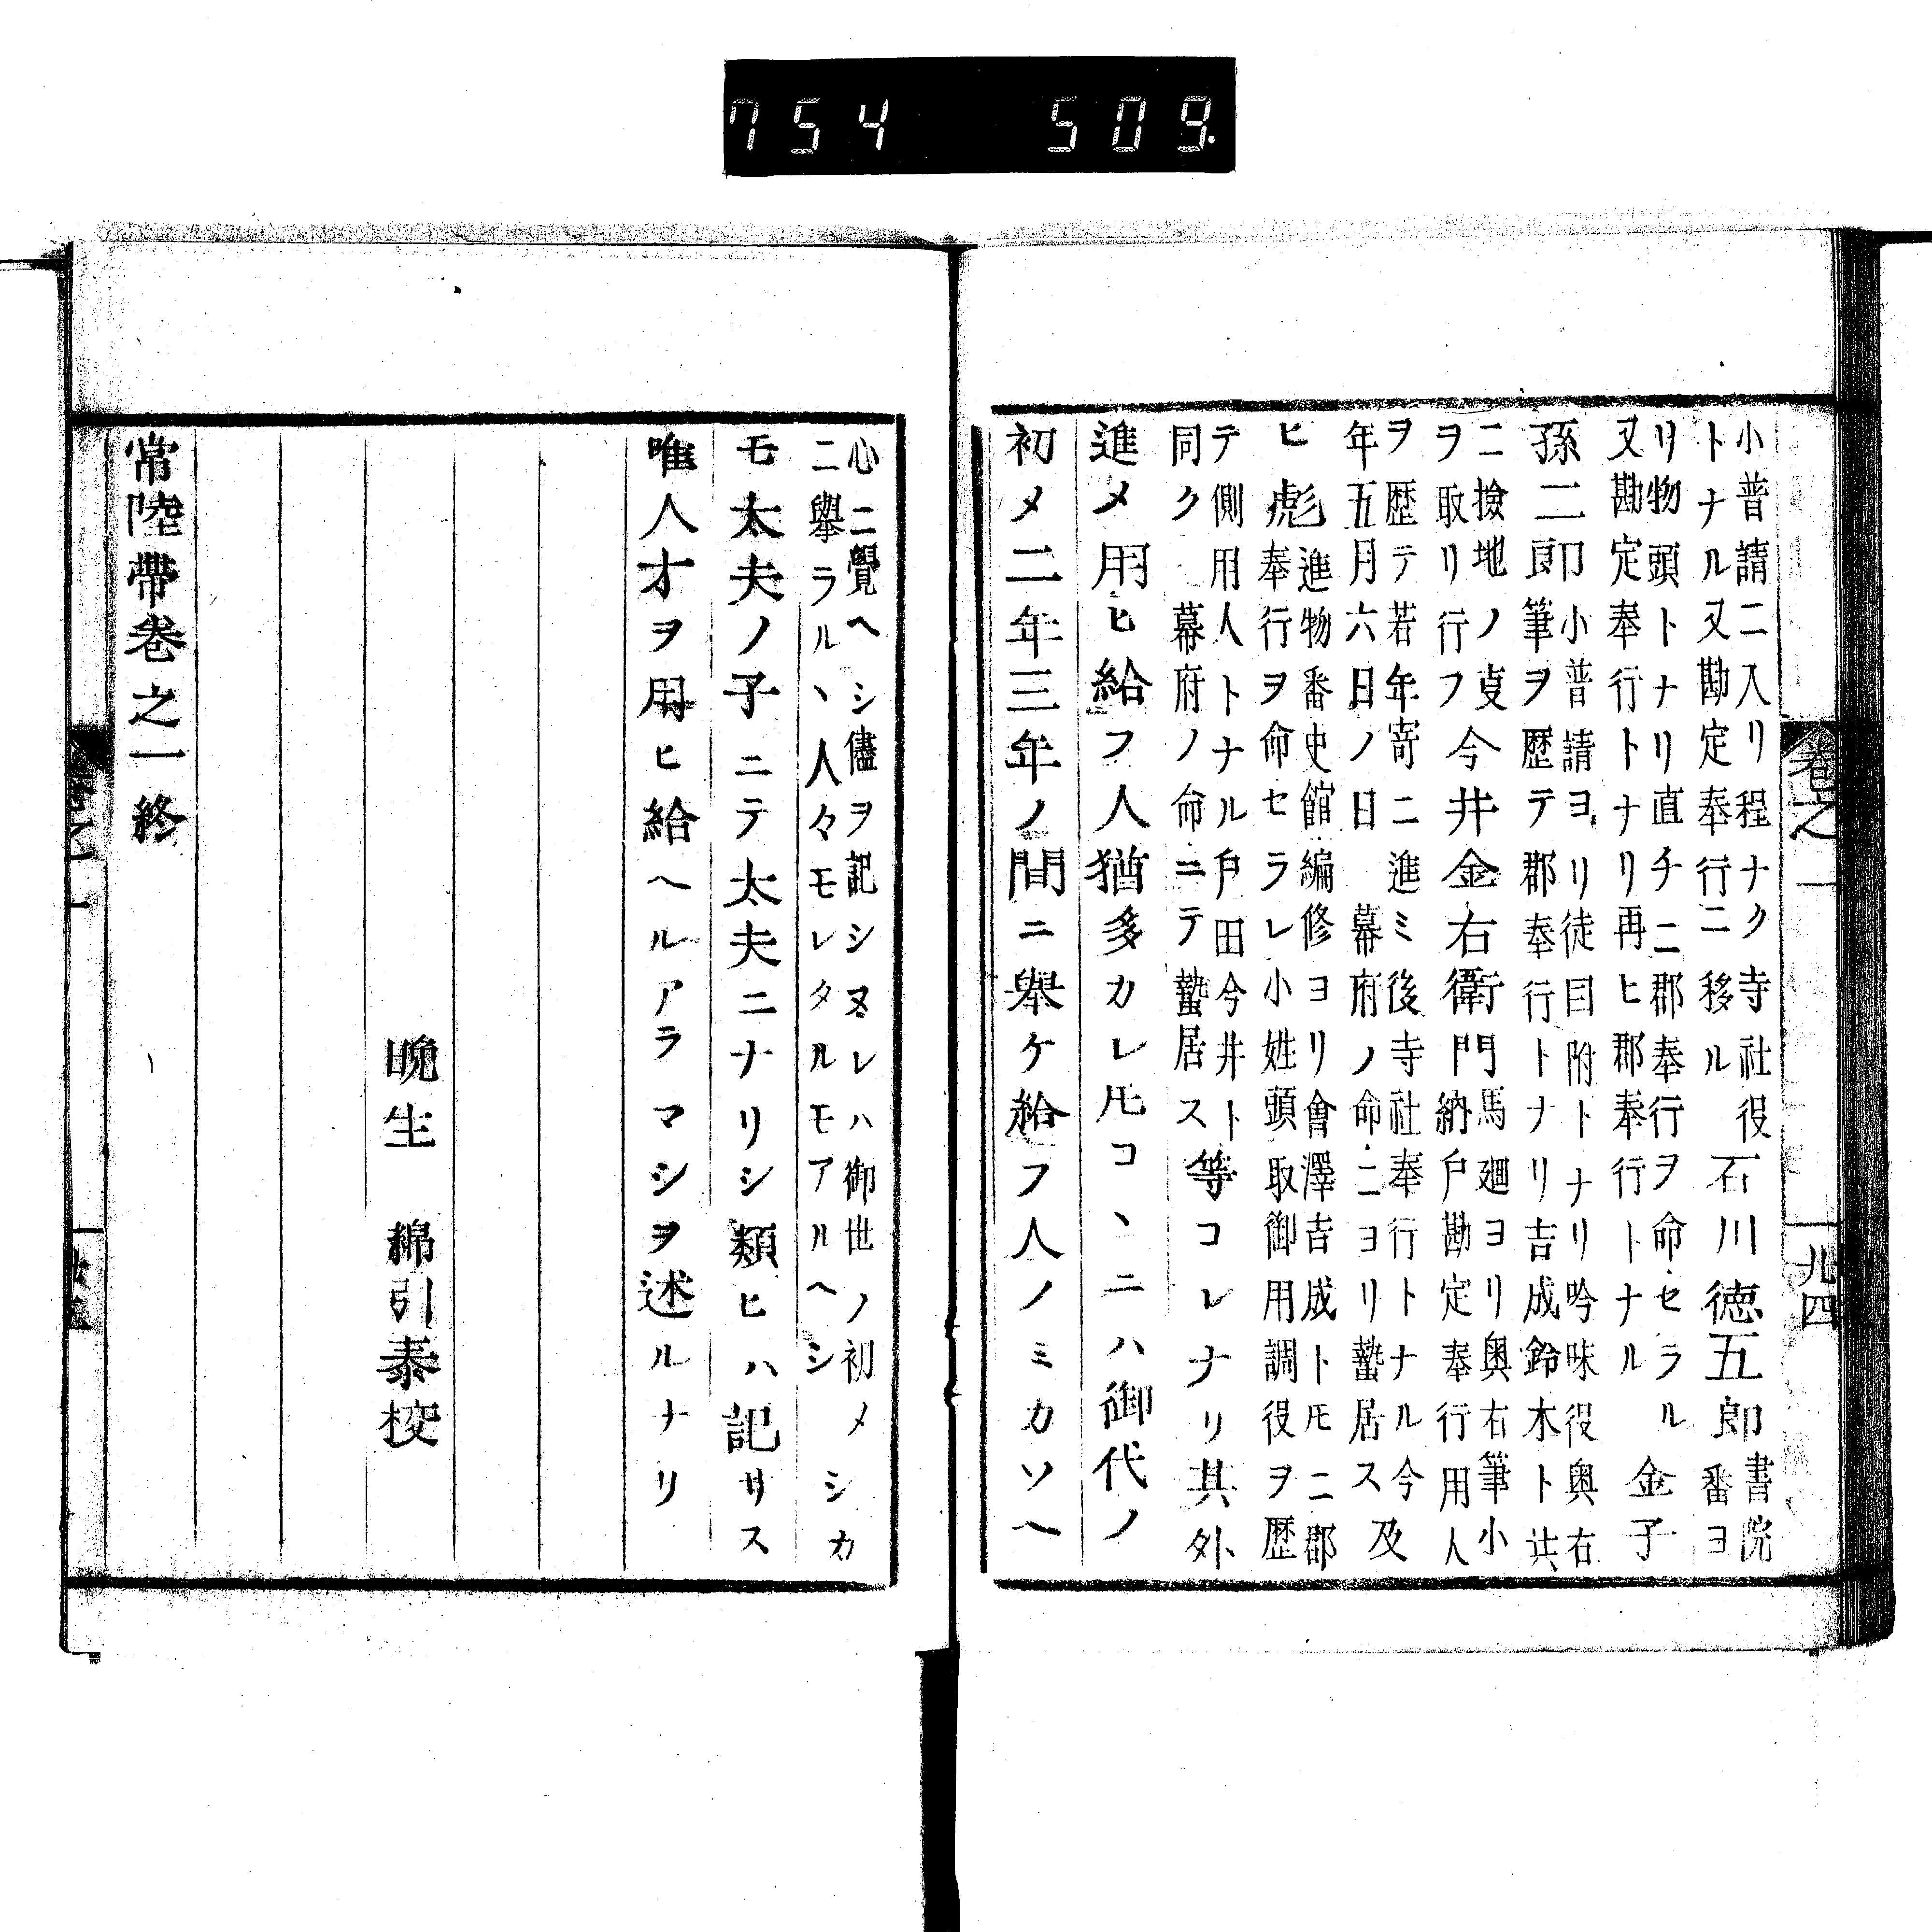 754 509.
小普請ニ入リ程ナク寺社役
トナル又勘定奉行ニ移ル
石川徳五郎
書院
番ヨ
リ物頭トナリ直チニ郡奉行ヲ命セラル
又勘定奉行トナリ再ヒ郡奉行トナル
金子
孫二郎
小普請ヨリ徒目附トナリ吟味役奥右
筆ヲ歴テ郡奉行トナリ吉成鈴木ト共
ニ撿地ノ
ヲ取リ行フ
今井金右衛門
馬廻ヨリ奥右筆小
納戸勘定奉行用人
ヲ歴テ若年寄ニ進ミ後寺社奉行トナル今
年五月六日ノ日 幕府ノ命ニヨリ蟄居ス
及
ヒ彪
進物番史館編修ヨリ會澤吉成ト𪜈ニ郡
奉行ヲ命セラレ小姓頭取御用調役ヲ歴
テ側用人トナル戸田今井ト
同ク 幕府ノ命ニテ蟄居ス
等コレナリ其外
進メ用ヒ給フ人猶多カレ𪜈コヽニハ御代ノ
初メ二年三年ノ間ニ舉ケ給フ人ノミカソヘ
卷之一
九四
心ニ覺ヘシ儘ヲ記シヌレハ御世ノ初メシカ
ニ舉ラルヽ人々モレタルモアルヘシ
モ太夫ノ子ニテ太夫ニナリシ類ヒハ記サス
唯人才ヲ用ヒ給ヘルアラマシヲ述ルナリ
晩生 綿引泰校
常陸帶卷之一終